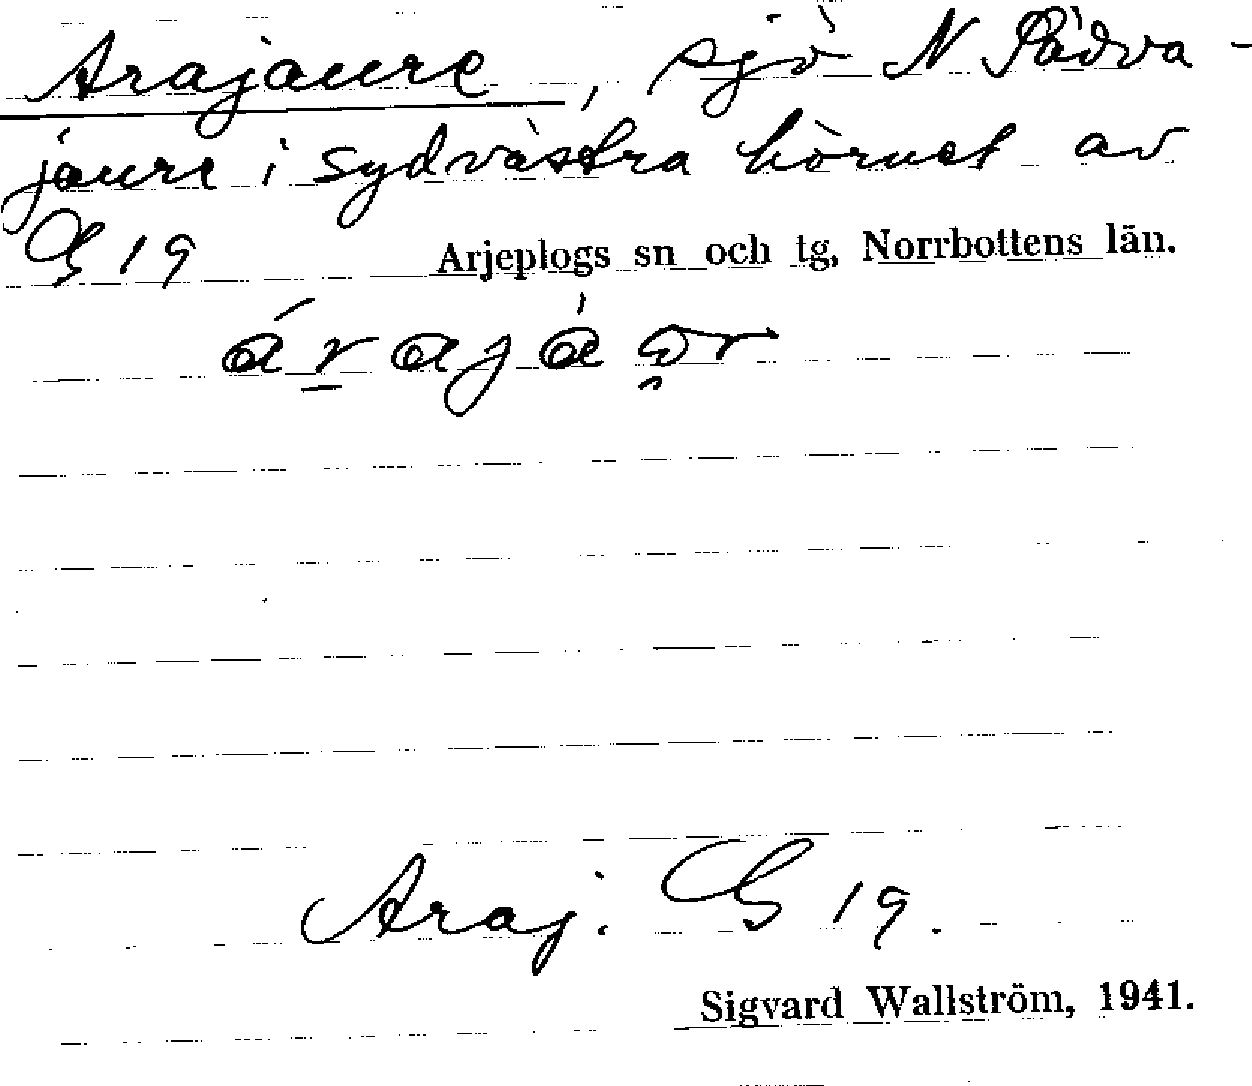 Arajaure, sjö N Pädva-
jaure i sydvästra hörnet av
G 19 Arjeplogs sn och tg, Norrbottens län.
Araj. G 19.
Sigvard Wallström, 1941.